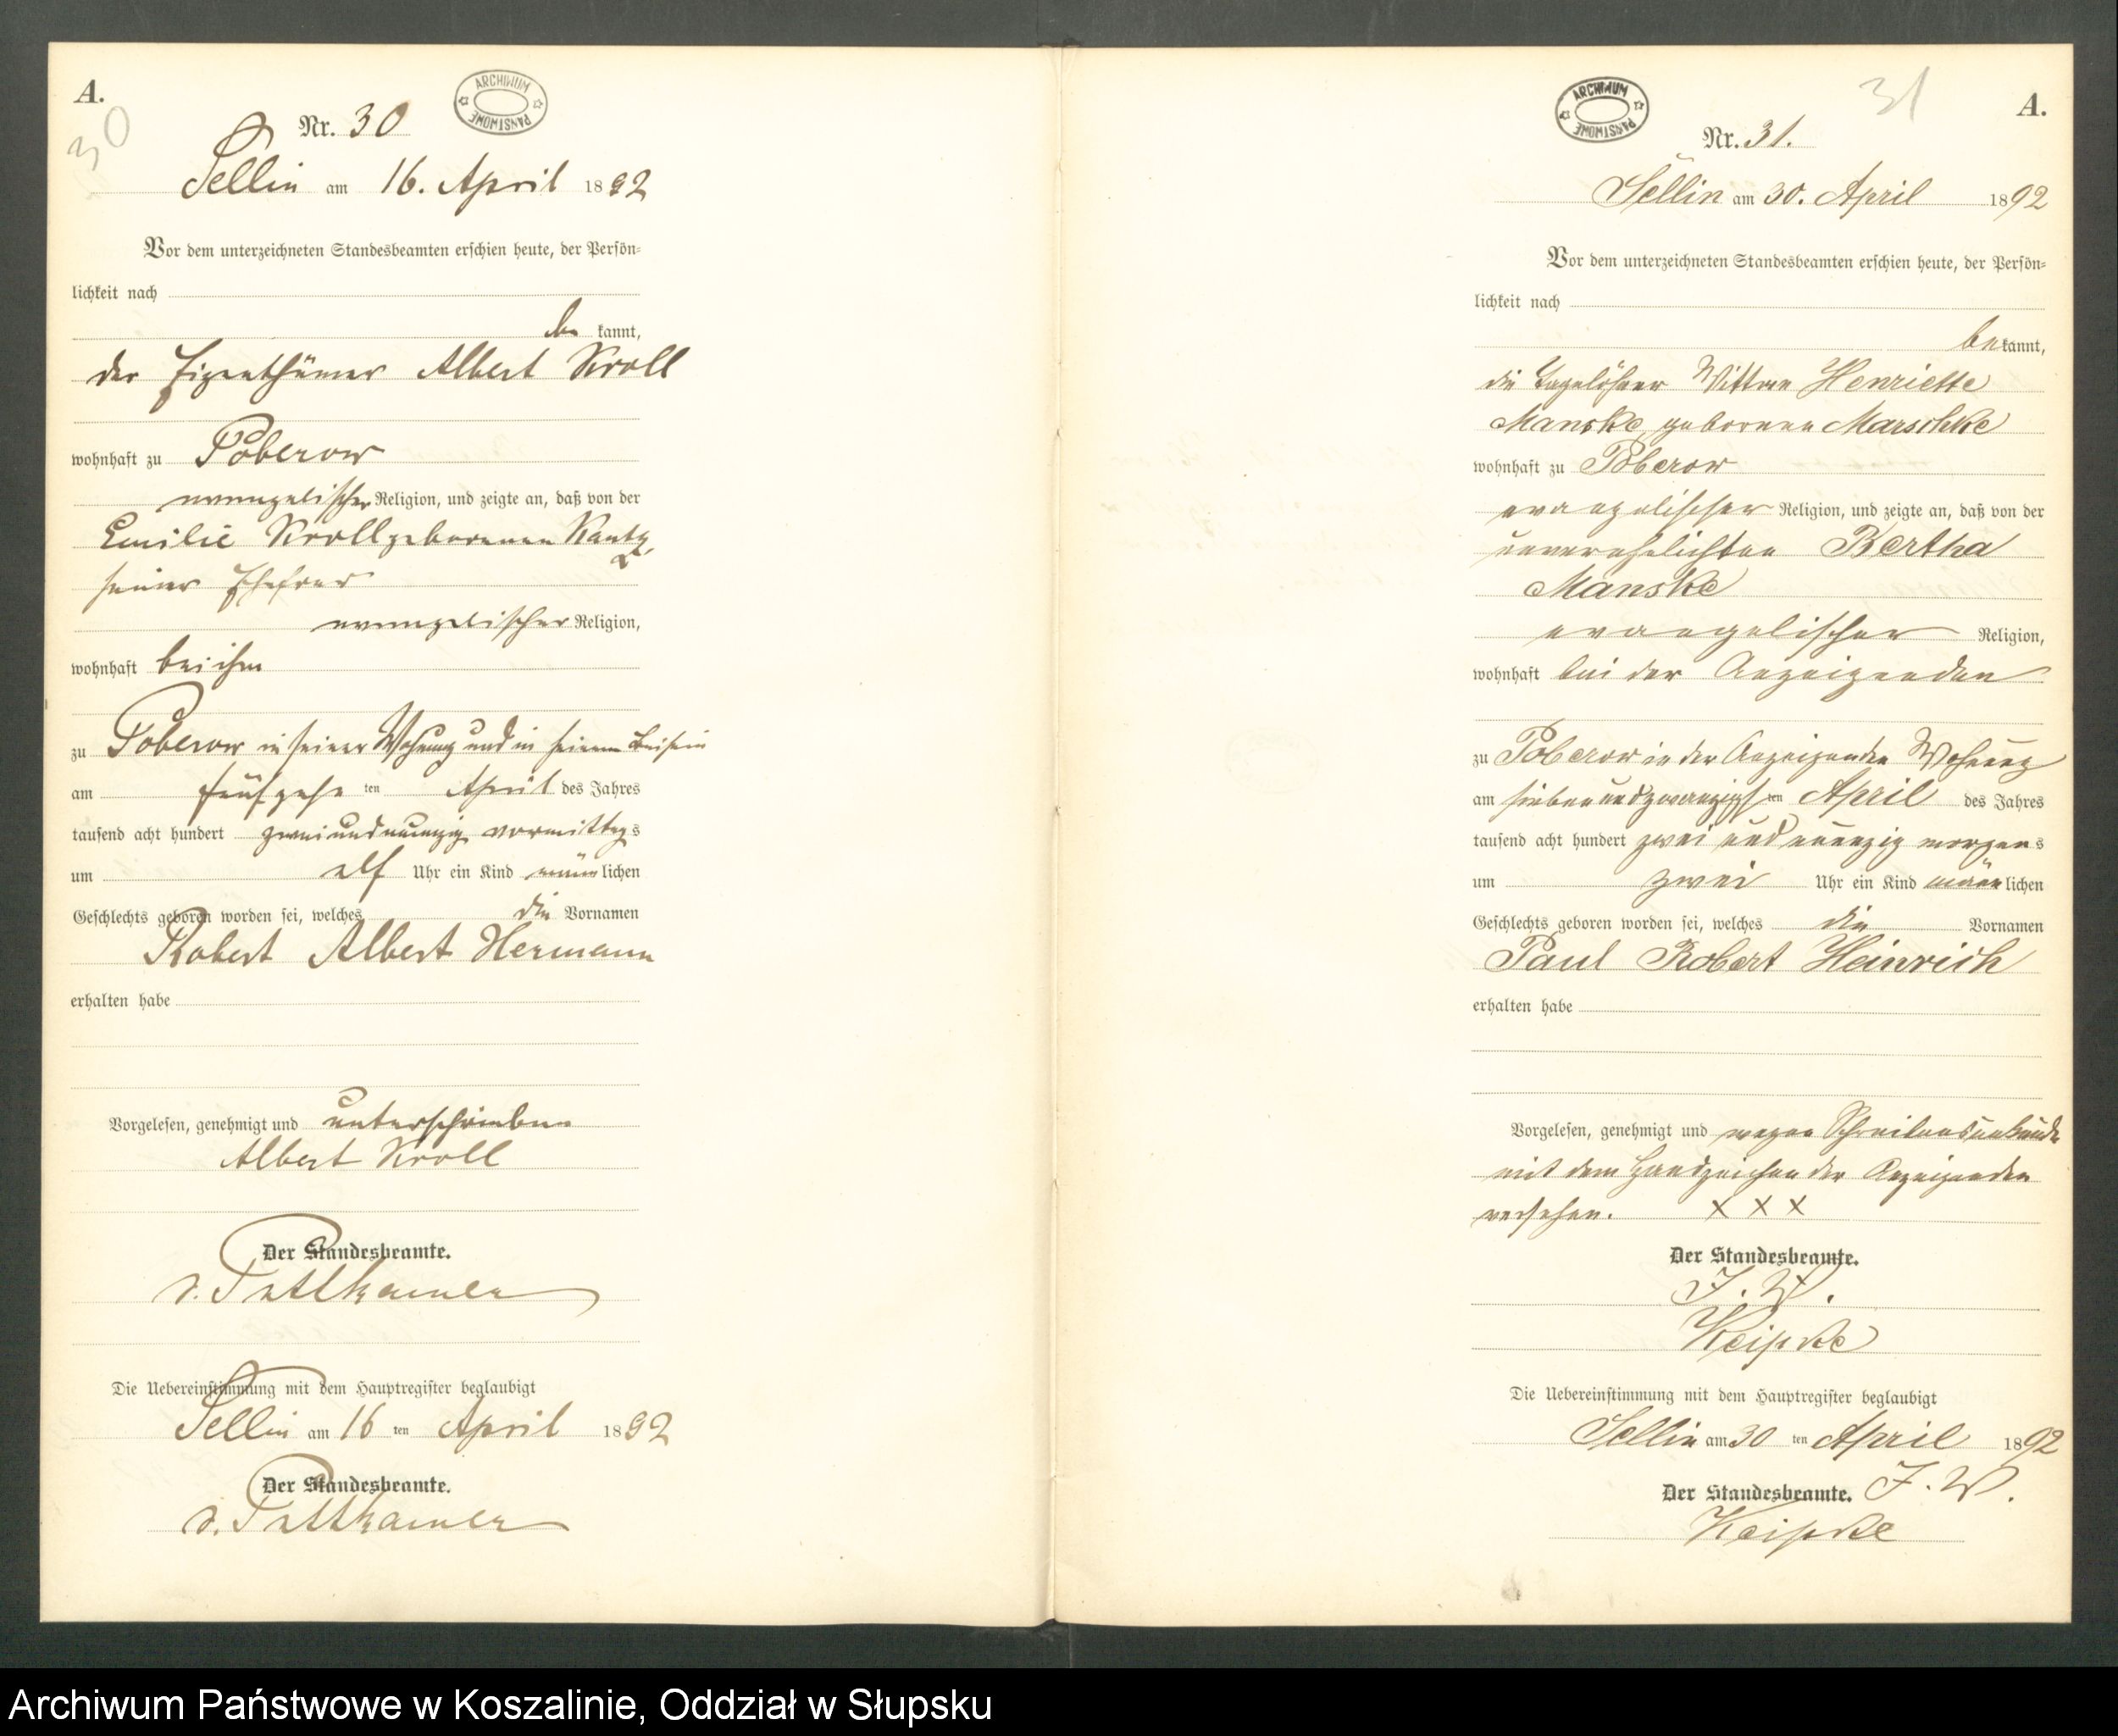 A.
30
Nr. 30
ARCHIWUM PAŃSTWOWE
Sellin am 16. April 1892
Vor dem unterzeichneten Standesbeamten erschien heute, der Persön=
lichkeit nach
be kannt,
der Eigenthümer Albert Kroll
wohnhaft zu Poberow
evangelischer Religion, und zeigte an, daß von der
Emilie Kroll geborenen Kautz,
seiner Ehefrau
evangelischer Religion,
wohnhaft bei ihm
zu Poberow in seiner Wohnung und in seinem Beisein
am fünfzehn ten April des Jahres
tausend acht hundert zwei und neunzig vormittags
um elf Uhr ein Kind männlichen
Geschlechts geboren worden sei, welches die Vornamen
Robert Albert Hermann
erhalten habe
Vorgelesen, genehmigt und unterschrieben
Albert Kroll
Der Standesbeamte.
v. Puttkamer
Die Uebereinstimmung mit dem Hauptregister beglaubigt
Sellin am 16 ten April 1892
Der Standesbeamte.
v. Puttkamer
ARCHIWUM PAŃSTWOWE
31
A.
Nr. 31.
Sellin am 30. April 1892
Vor dem unterzeichneten Standesbeamten erschien heute, der Persön=
lichkeit nach
bekannt,
die Tagelöhner Wittwe Henriette
Manske, geborene Marschke
wohnhaft zu Poberow
evangelischer Religion, und zeigte an, daß von der
unverehelichten Bertha
Manske
evangelischer Religion,
wohnhaft bei der Anzeigenden
zu Poberow in der Anzeigenden Wohnung
am siebenundzwanzigsten April des Jahres
tausend acht hundert zwei und neunzig morgens
um zwei Uhr ein Kind männlichen
Geschlechts geboren worden sei, welches die Vornamen
Paul Robert Heinrich
erhalten habe
Vorgelesen, genehmigt und wegen Schreibensunkunde
mit dem Handzeichen der Anzeigenden
versehen. X X X
Der Standesbeamte.
I. V.
Die Uebereinstimmung mit dem Hauptregister beglaubigt
Sellin am 30 ten April 1892
Der Standesbeamte. I. V.
Archiwum Państwowe w Koszalinie, Oddział w Słupsku